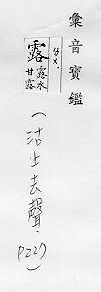 彙音寶鑑
露
露水
甘露
(沽上去聲.
P227)